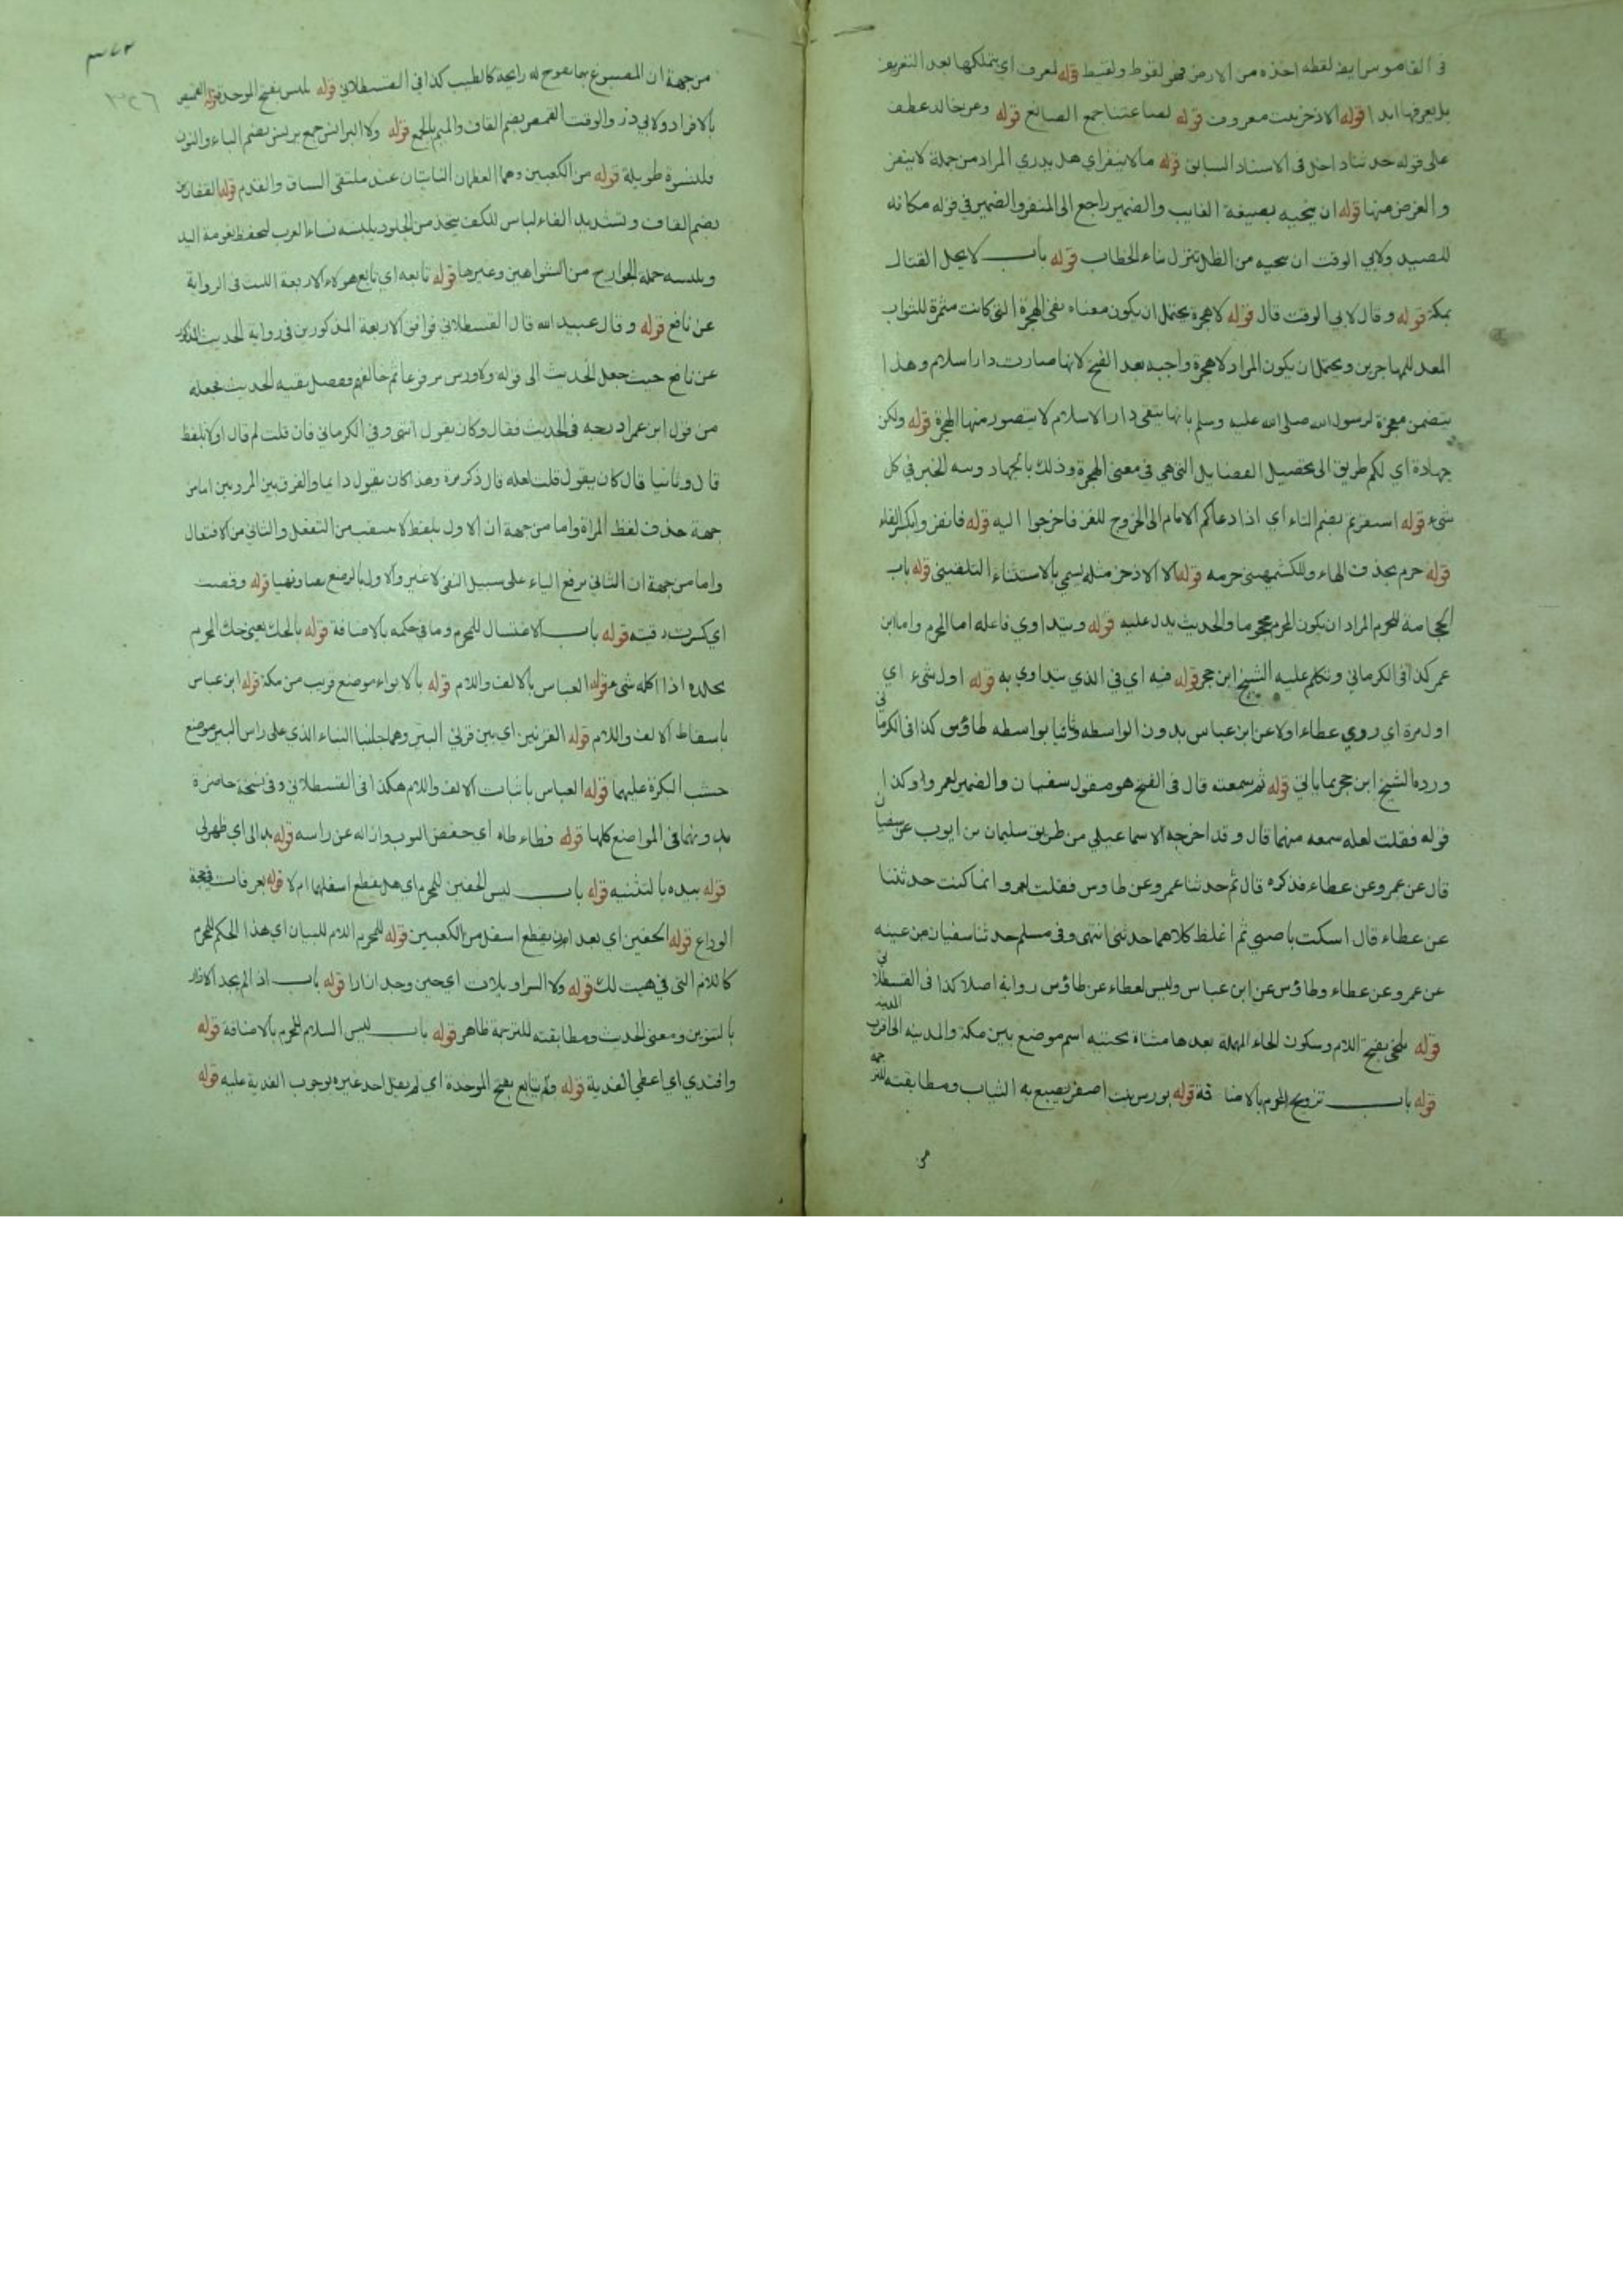 في القاموس ايضا لقطه اخذه من الارض فهو لقوط ولقيط قوله لمعرف اي يتملكها بعد التعريف
بل يعرفها ابدا قوله الاذخر نبت معروف قوله لصاغتنا جمع الصائغ قوله وعن خالد عطف
على قوله حدثنا داخل في الاسناد السابق قوله ما لا ينفر اي هل يدري المراد من جملة لا ينفر
والغرض منها قوله ان ينحيه بصيغة الغايب والضمير راجع الى المنفر والضمير في قوله مكانه
للصيد ولابي الوقت ان تنحيه من الظل تنزل بتاء الخطاب قوله باب لا يحل القتال
بمكة قوله وقال لابي الوقت قال قوله لا هجرة يحتمل ان يكون معناه نفى الهجرة التي كانت مثمرة للثواب
المعد للمهاجرين ويحتمل ان يكون المراد لا هجرة واجبه بعد الفتح لانها صارت دار اسلام وهذا
يتضمن معجزة لرسول الله صلى الله عليه وسلم بانها تبقى دار الاسلام لا يتصور منها الهجرة قوله ولكن
جهادة اي لكم طريق الى تحصيل الفضايل التي هي في معنى الهجرة وذلك بالجهاد ونيه الخير في كل
شيء قوله استنفرتم بضم التاء اي اذا دعاكم الامام الى الخروج للغز فاخرجوا اليه قوله فانفروا بكسر الفاء
قوله حرم بحذف الهاء وللكشميهني حرمه قوله الا الاذخر مثله يسمي بالاستثناء التلقيني قوله باب
الحجامة للمحرم المراد ان يكون المحرم محجوما والحديث يدل عليه قوله ويتداوي فاعله اما المحرم واما ابن
عمر كذا في الكرماني وتكلم عليه الشيخ ابن حجر قوله فيه اي في الذي يتداوي به قوله اول شيء اي
اول مرة اي روي عطاء اولا عن ابن عباس بدون الواسطه وثانيا بواسطه طاؤس كذا في الكرماني
ورده الشيخ ابن حجر بما ياتي قوله ثم سمعته قال في الفتح هو مقول سفيان والضمير لعمرو وكذا
قوله فقلت لعله سمعه منهما قال وقد اخرجه الاسماعيلي من طريق سليمان بن ايوب عن سفيان
قال عن عمرو عن عطاء فذكره قال ثم حدثنا عمرو عن طاوس فقلت لعمرو انما كنت حدثتنا
عن عطاء قال اسكت يا صبي ثم اغلط كلاهما حدثني انتهى وفي مسلم حدثنا سفيان بن عيينه
عن عمرو عن عطاء وطاؤس عن ابن عباس وليس لعطاء عن طاؤس رواية اصلا كذا في القسطلاني
قوله بلحي بفتح اللام وسكون الحاء المهملة بعدها مثناة تحتيه اسم موضع بين مكة والمدينه الى اقرب المدينه
قوله باب تزويج المحرم بالاضافة قوله بورس نبت اصفر يصبغ به الثياب ومطابقته للترجمه
من
من جهة ان المصبوغ بها يفوح له رايحة كالطيب كذا في القسطلاني قوله يلبس بفتح الموحدة قوله القميص
بالافراد ولابي ذر والوقت القمص بضم القاف والميم بالجمع قوله ولا البرانس جمع برنس بضم الباء والنون
قلنسوة طويلة قوله من الكعبين وهما العظمان الناتيان عند ملتقى الساق والقدم قوله القفازين
بضم القاف وتشديد الفاء لباس للكف يتخذ من الجلود يلبسه نساء العرب لتحفظ نعومة اليد
ويلبسه حملة الجوارح من الشواهين وغيرها قوله تابعه اي تابع هولاء الاربعة الليث في الرواية
عن نافع قوله وقال عبيد الله قال القسطلاني فوافق الاربعة المذكورين في رواية الحديث المذكور
عن نافع حيث جعل الحديث الى قوله ولا ورس مرفوعا ثم خالفهم وفصل بقيه الحديث فجعله
من قول ابن عمر ادرجه في الحديث فقال وكان يقول انتهى وفي الكرماني فان قلت لم قال اولا بلفظ
قال وثانيا قال كان يقول قلت لعله قال ذكر مرة وهذا كان يقول دايما والفرق بين المرويين اما من
جهة حذف لفظ المراة واما من جهة ان الاول بلفظ لا تتنقب من التفعل والثاني من الافتعال
واما من جهة ان الثاني برفع الياء على سبيل النفي لا غير والاول بالرفع نفيا ونهيا قوله وقصت
اي كسرت رقبته قوله باب الاغتسال للمحرم وما في حكمه بالاضافة قوله بالحك يعني حك المحرم
بجلده اذا اكله شيء قوله العباس بالالف واللام قوله بالابواء موضع قريب من مكة قوله ابن عباس
باسقاط الالف واللام قوله القرنين اي بين قرني البئر وهما جانبا البناء الذي على راس البير موضع
خشب البكرة عليهما قوله العباس باثبات الالف واللام هكذا في القسطلاني وفي نسخة حاضرة
بدونها في المواضع كلها قوله فطاءطاه اي خفض الثوب وازاله عن راسه قوله بدا لي اي ظهر لي
قوله بيده بالتثنيه قوله باب لبس الخفين للمحرم اي هل يقطع اسفلهما ام لا قوله بعرفات في حجة
الوداع قوله الخفين اي بعد ان يقطع اسفل من الكعبين قوله للمحرم اللام للبيان اي هذا الحكم للمحرم
كاللام التي في هيت لك قوله ولا السراويلات اي حين وجد ازارا قوله باب اذا لم يجد الازار
بالتنوين ومعنى الحديث ومطابقته للترجمة ظاهر قوله باب لبس السلاح للمحرم بالاضافة قوله
وافتدي اي اعطي الفدية قوله ولم يتابع بفتح الموحدة اي لم يقل احد غيره بوجوب الفدية عليه قوله